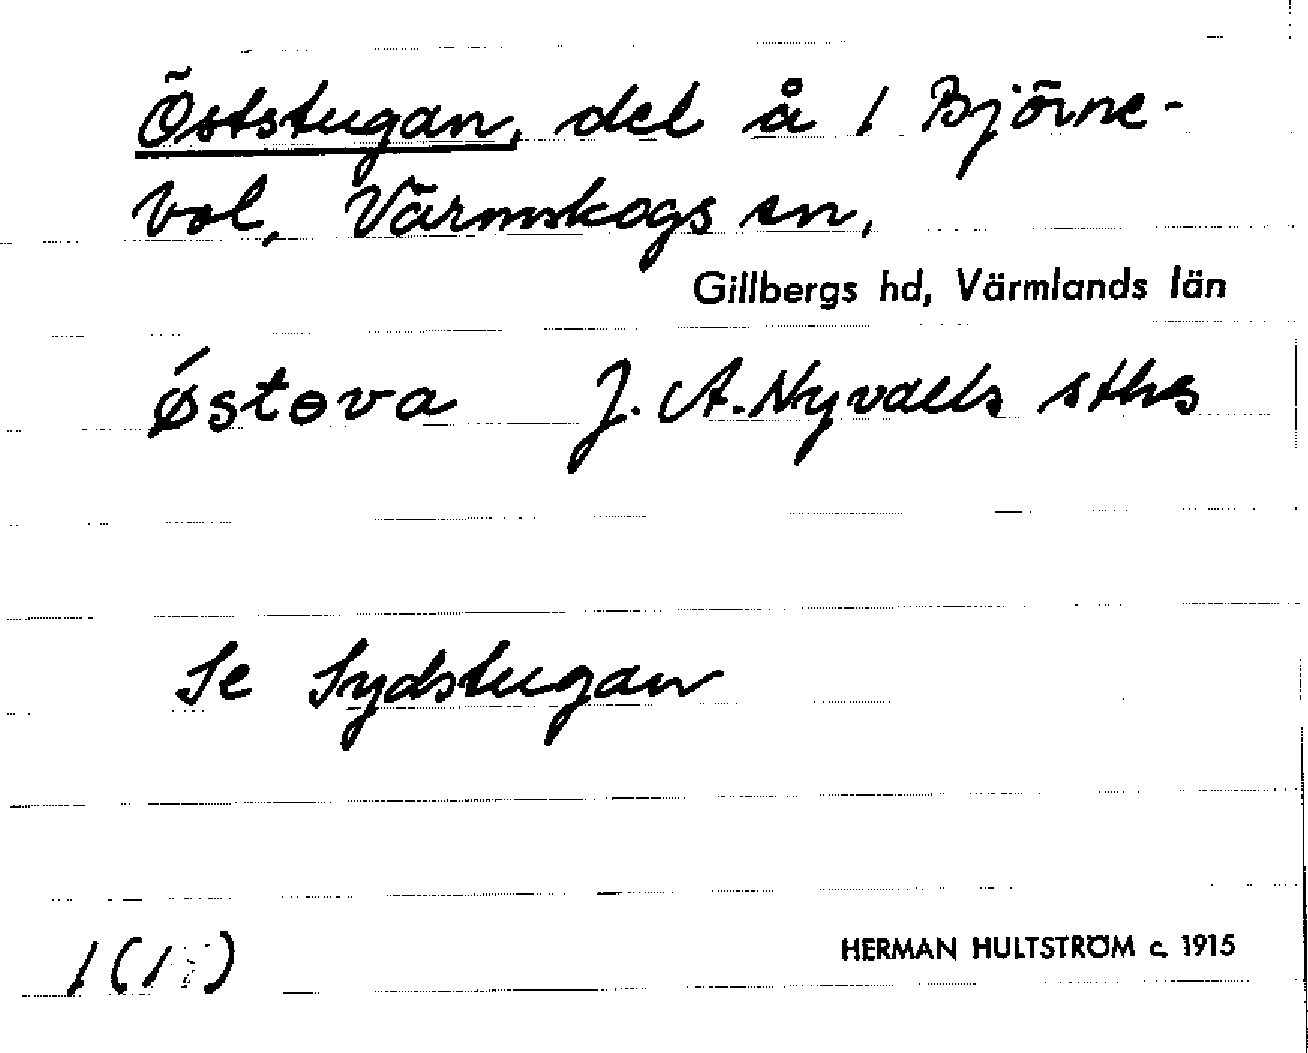 Öststugan, del å 1 Björne-
vol, Värmskogs sn,
Gillbergs hd, Värmlands län
østɵva J. A. Nyvalls sths
Se Sydstugan
HERMAN HULTSTRÖM c. 1915